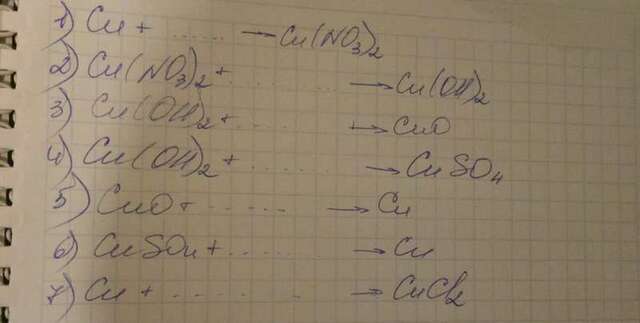 1) Cu + ...... → Cu(NO3)2
2) Cu(NO3)2 + ........ → Cu(OH)2
3) Cu(OH)2 + ....... → CuO
4) Cu(OH)2 + ....... → CuSO4
5) CuO + ....... → Cu
6) CuSO4 + ....... → Cu
7) Cu + ......... → CuCl2